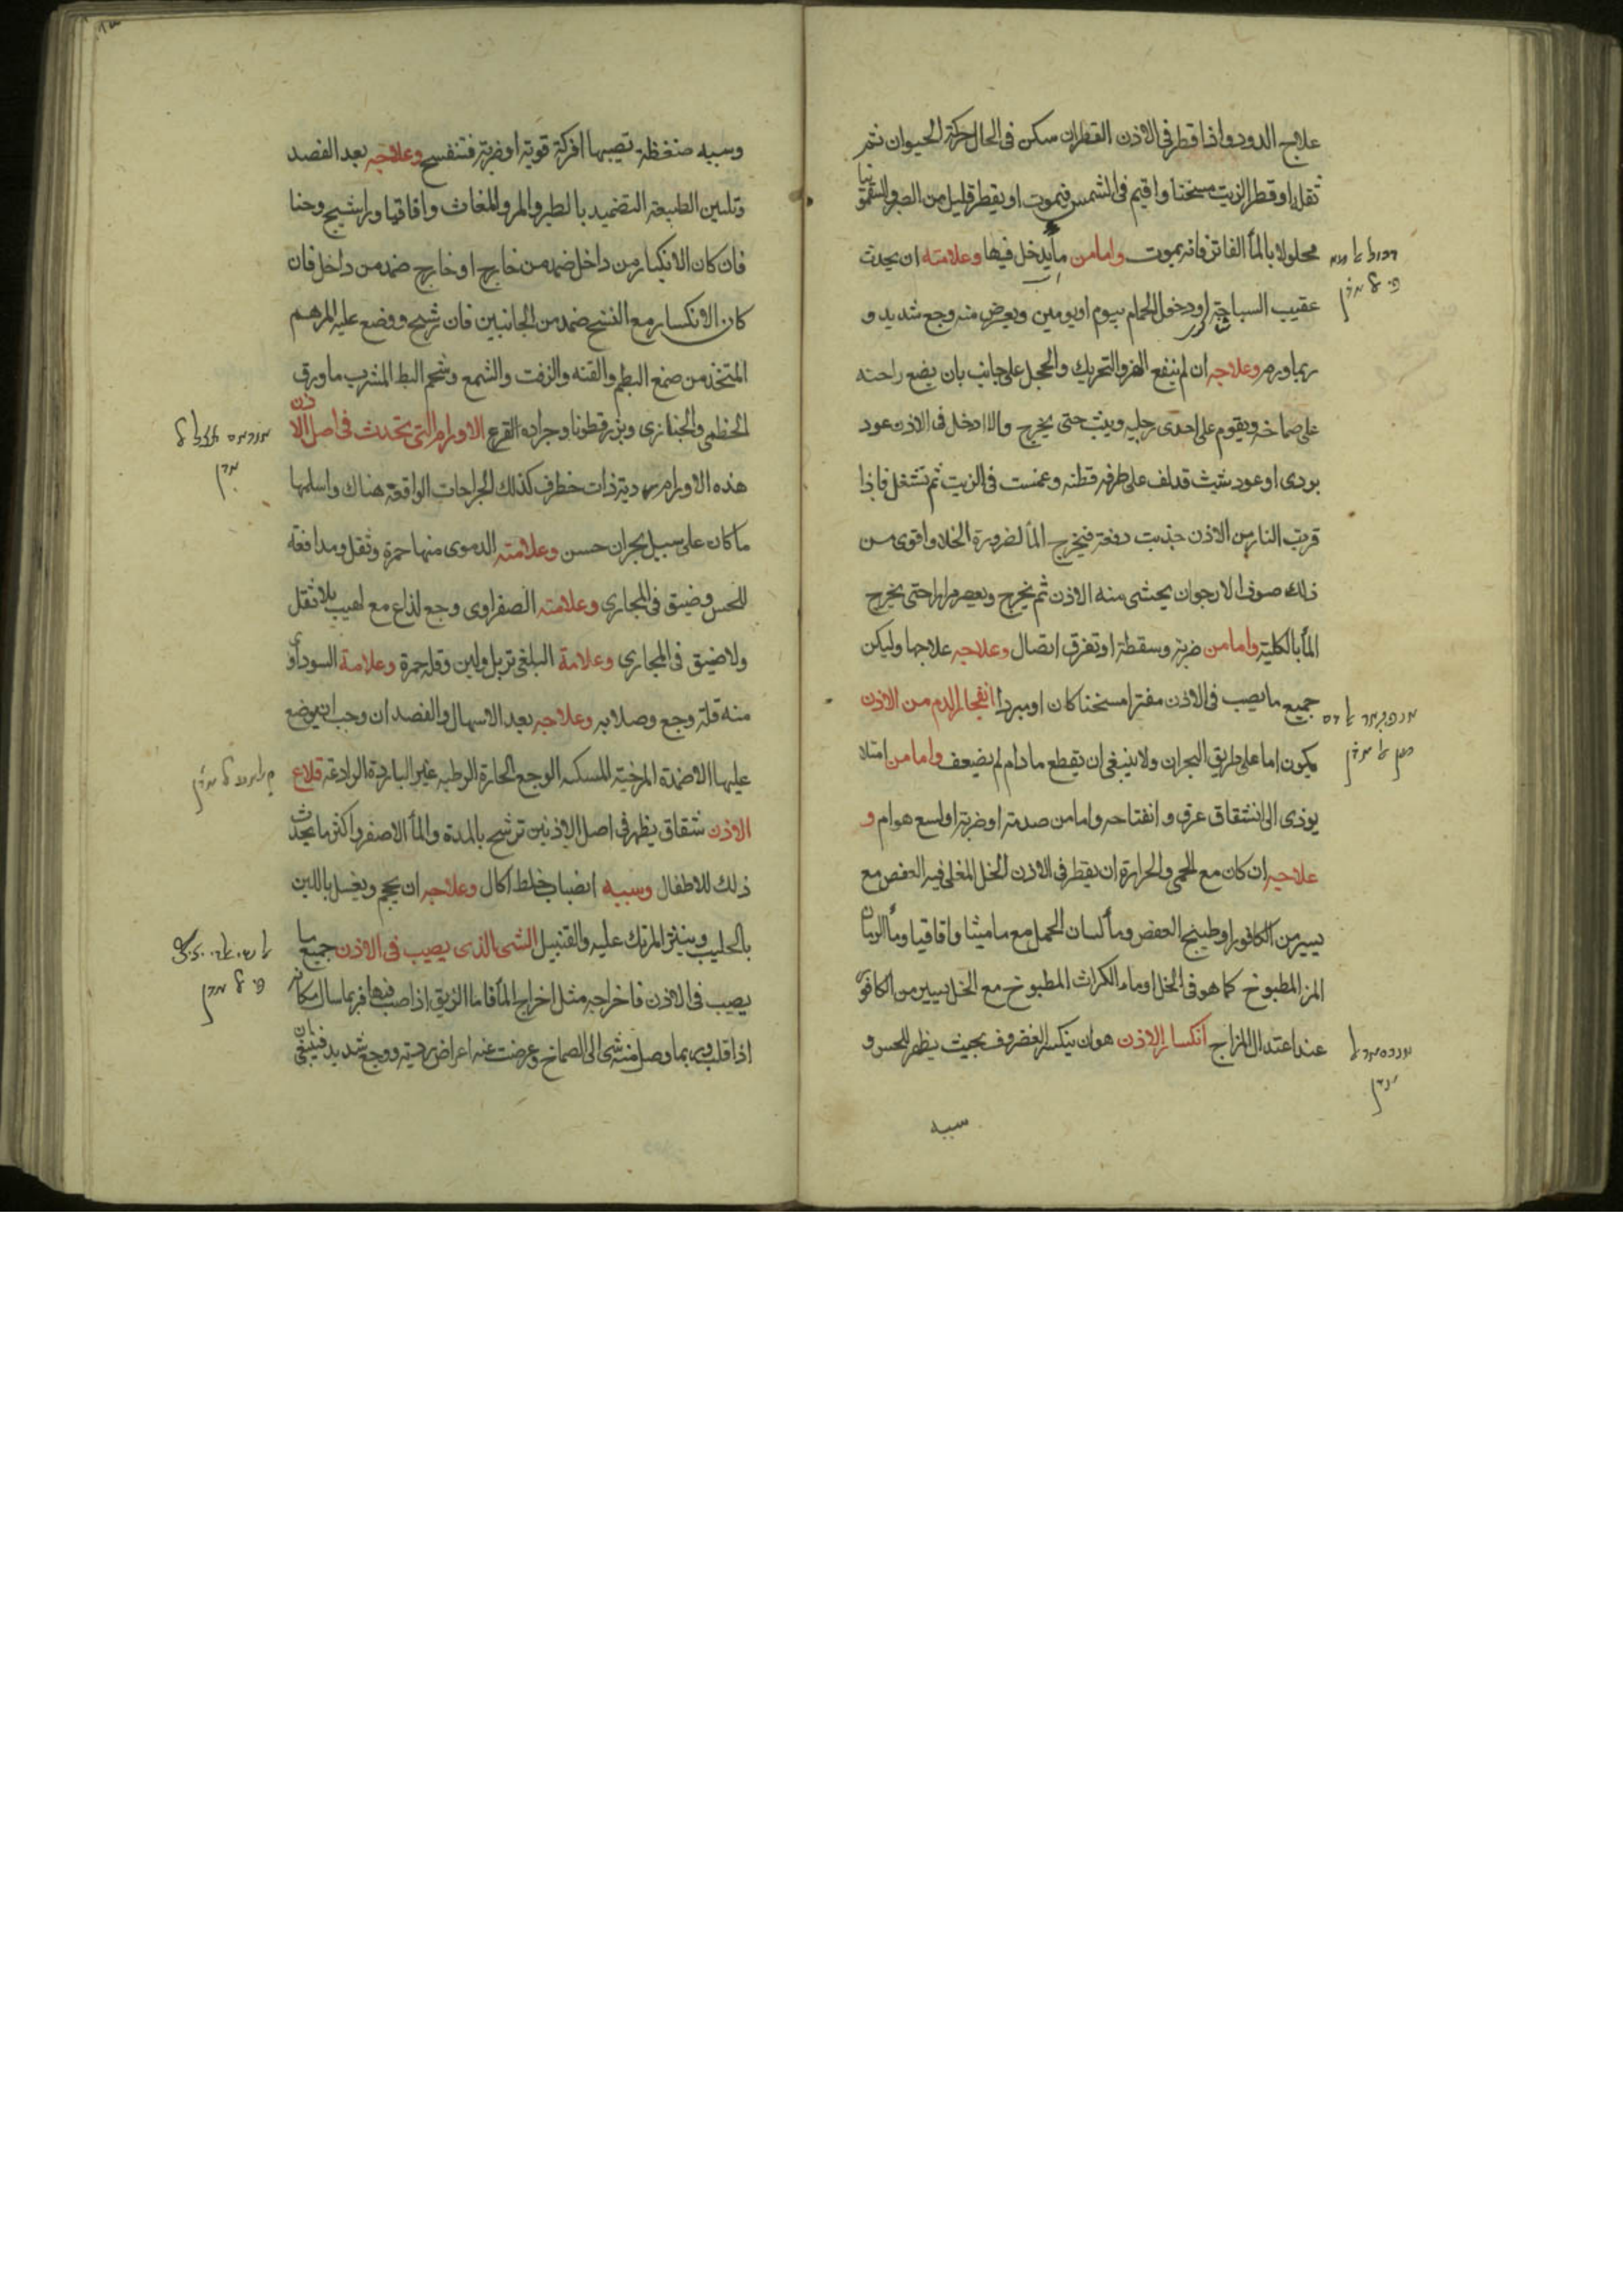 علاج الدود واذا قطر فى الاذن القطران سكن فى الحال حركة الحيوان ثم
تقله او قطر الزيت مسخنا واقيم فى الشمس فيموت او يقطر قليل من الصبر والسقمونيا
محلولا بالمأ الفاتر فانه يموت واما من مأ يدخل فيها وعلامته ان يحدث
عقيب السباحة او دخول الحمام بيوم او يومين ويعرض منه وجع شديد و
ربما ورم وعلاجه ان لم ينفع الهز والتحريك والحجل على جانب بان يضع راحته
على صماخه ويقوم على احدى رجليه ويثب حتى يخرج والا ادخل فى الاذن عود
بردى او عود شبث قد لف على طرفه قطنه وغمست فى الزيت ثم تشتعل فاذا
قربت النار من الاذن جذبت دفعة فيخرج المأ لضرورة الخلاو اقوى من
ذلك صوف الارجوان يحشى منه الاذن ثم يخرج ويعصر مرارا حتى يخرج
المأ بالكلية واما من ضربة وسقطة او تفرق اتصال وعلاجه علاجها وليكن
جميع ما يصب فى الاذن مفترا مسخنا كان او مبردا انفجار الدم من الاذن
يكون اما على طريق البحران ولا ينبغى ان يقطع ما دام لم يضعف واما من امتلا
يوذى الى انشقاق عرق وانفتاحه واما من صدمة او ضربة او لسع هوام و
علاجه ان كان مع الحمى والحرارة ان يقطر فى الاذن الخل المغلى فيه العفص مع
يسير من الكافور او طبيخ العفص ومأ لسان الحمل مع ماميثا واقاقيا ومأ الرمان
المز المطبوخ كما هو فى الخل او ماء الكراث المطبوخ مع الخل بيسير من الكافور
عند اعتدال المزاج انكسار الاذن هو ان ينكسر الغضروف بحيث يظهر للحس و
سببه
وسببه ضغطة تصيبها او حركة قوية او ضربة فتنفسخ وعلاجه بعد الفصد
وتليين الطبيعة التضميد بالصبر والمر والمغاث واقاقيا وراشيج وحنا
فان كان الانكسار من داخل ضمد من خارج او خارج ضمد من داخل فان
كان الانكسار مع الفسخ ضمد من الجانبين فان شرح ووضع عليه المرهم
المتخذ من صمغ البطم والقنه والزفت والشمع وشحم البط المشرب ما ورق
الخطمى والخبازى وبزر قطونا وجراده القرع الاورام التى تحدث فى اصل الاذن
هذه الاورام ردية ذات خطر كذلك الجراحات الواقعة هناك واسلمها
ما كان على سبيل بحران حسن وعلامته الدموى منها حمرة وثقل ومدافعة
للحس وضيق فى المجارى وعلامته الصفراوى وجع لذاع مع لهيب بلا ثقل
ولا ضيق فى المجارى وعلامة البلغمى تربل ولين وقلة حمرة وعلامة السوداوى
منه قلة وجع وصلابه وعلاجه بعد الاسهال والفصد ان وجب ان يوضع
عليها الاضمدة المرخية المسكنه الوجع الحارة الرطبه غير الباردة الرادعة قلاع
الاذن شقاق يظهر فى اصل الاذنين ترشح بالمدة والمأ الاصفر واكثر ما يحدث
ذلك للاطفال وسببه انصباب خلط اكال وعلاجه ان يحجم ويغسل باللبن
بالحليب وينثر المرتك عليه والقنبيل الشى الذى يصب فى الاذن جميع ما
يصب فى الاذن فاخراجه مثل اخراج المأ فاما الزيبق اذا صب فيها فربما سال مكانه
اذا قلب وربما وصل منه شى الى الصماخ وعرضت عنه اعراض ردية ووجع شديد فينبغى ان